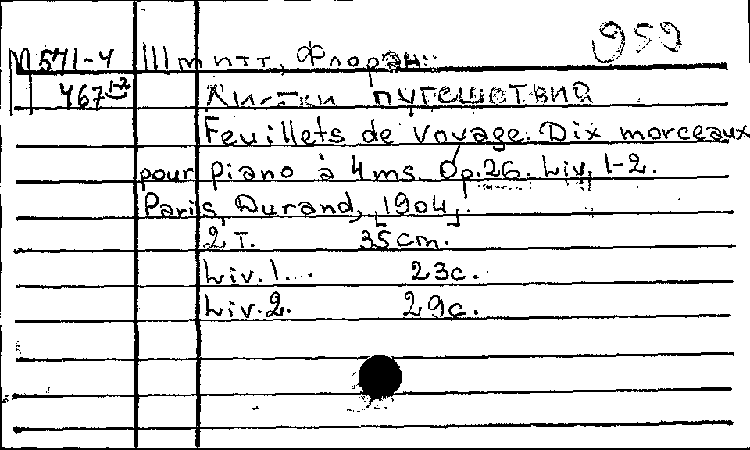 959
М 571-4 Шмитт, Флоран.
467 1-2 Листки путешествия
Feuillets de voyage. Dix morceaux
pour piano à 4 ms. Op. 26. Liv. 1-2.
Paris, Durand, [1904].
2 т. 35 cm.
Liv. 1. 23 c.
Liv. 2. 29 c.